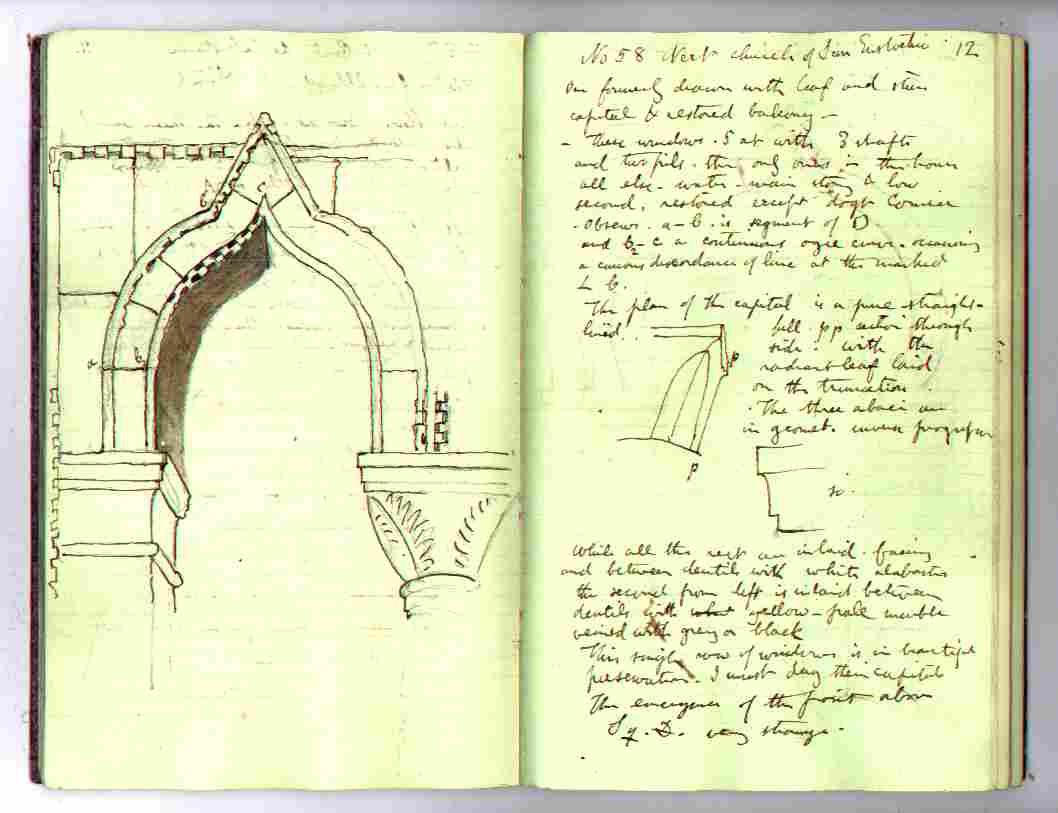 No 58 Next church of San Eustachio 12
One formerly drawn with leaf and stem
capital & restored balcony -
- These windows. 5 at with 3 shafts
and two pils. the only ones in the house
all else - water - main story & low
second, restored except dogt Cornice
. Observe. a-b. is segment of
and b-c a continuous ogee curve. occasioning
a curious discordance of line at the marked
b.
The plan of the capital is a pure straight-
lined.
bell. pp section through
side. with the
radiant leaf laid
on the truncation.
. The three abaci are
in geomet. inverse progression
so.
While all the rest are inlaid. facing
and between dentils with white alabaster
the second from left is inlaid between
dentils with what yellow - pale marble
veined with grey or black
This single row of windows is in beautiful
preservation. I must dag their capitals
The emergence of the front above
Sq. D. very strange -
a b
b c
p
p